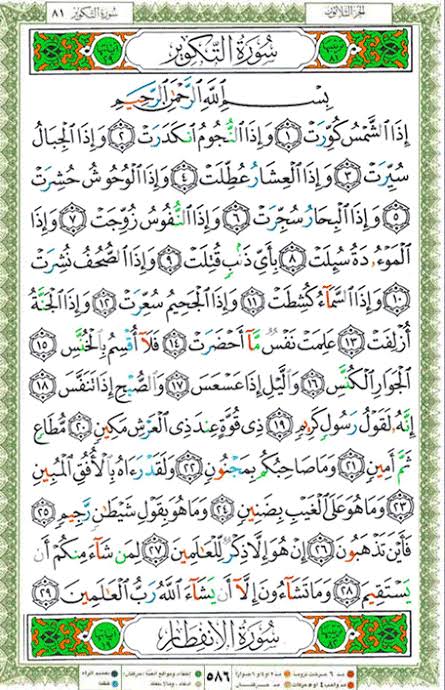 الجزء الثلاثون
سورة التكوير ٨١
سُورَةُ التَّكْوِيرِ
بِسْمِ ٱللَّهِ ٱلرَّحْمَٰنِ ٱلرَّحِيمِ
إِذَا ٱلشَّمْسُ كُوِّرَتْ ١ وَإِذَا ٱلنُّجُومُ ٱنكَدَرَتْ ٢ وَإِذَا ٱلْجِبَالُ
سُيِّرَتْ ٣ وَإِذَا ٱلْعِشَارُ عُطِّلَتْ ٤ وَإِذَا ٱلْوُحُوشُ حُشِرَتْ
٥ وَإِذَا ٱلْبِحَارُ سُجِّرَتْ ٦ وَإِذَا ٱلنُّفُوسُ زُوِّجَتْ ٧ وَإِذَا
ٱلْمَوْءُۥدَةُ سُئِلَتْ ٨ بِأَىِّ ذَنۢبٍ قُتِلَتْ ٩ وَإِذَا ٱلصُّحُفُ نُشِرَتْ
١٠ وَإِذَا ٱلسَّمَآءُ كُشِطَتْ ١١ وَإِذَا ٱلْجَحِيمُ سُعِّرَتْ ١٢ وَإِذَا ٱلْجَنَّةُ
أُزْلِفَتْ ١٣ عَلِمَتْ نَفْسٌ مَّآ أَحْضَرَتْ ١٤ فَلَآ أُقْسِمُ بِٱلْخُنَّسِ ١٥
ٱلْجَوَارِ ٱلْكُنَّسِ ١٦ وَٱلَّيْلِ إِذَا عَسْعَسَ ١٧ وَٱلصُّبْحِ إِذَا تَنَفَّسَ ١٨
إِنَّهُۥ لَقَوْلُ رَسُولٍ كَرِيمٍ ١٩ ذِى قُوَّةٍ عِندَ ذِى ٱلْعَرْشِ مَكِينٍ ٢٠ مُّطَاعٍ
ثَمَّ أَمِينٍ ٢١ وَمَا صَاحِبُكُم بِمَجْنُونٍ ٢٢ وَلَقَدْ رَءَاهُ بِٱلْأُفُقِ ٱلْمُبِينِ
٢٣ وَمَا هُوَ عَلَى ٱلْغَيْبِ بِضَنِينٍ ٢٤ وَمَا هُوَ بِقَوْلِ شَيْطَٰنٍ رَّجِيمٍ ٢٥
فَأَيْنَ تَذْهَبُونَ ٢٦ إِنْ هُوَ إِلَّا ذِكْرٌ لِّلْعَٰلَمِينَ ٢٧ لِمَن شَآءَ مِنكُمْ أَن
يَسْتَقِيمَ ٢٨ وَمَا تَشَآءُونَ إِلَّآ أَن يَشَآءَ ٱللَّهُ رَبُّ ٱلْعَٰلَمِينَ ٢٩
سُورَةُ الانفِطَارِ
٥٨٦